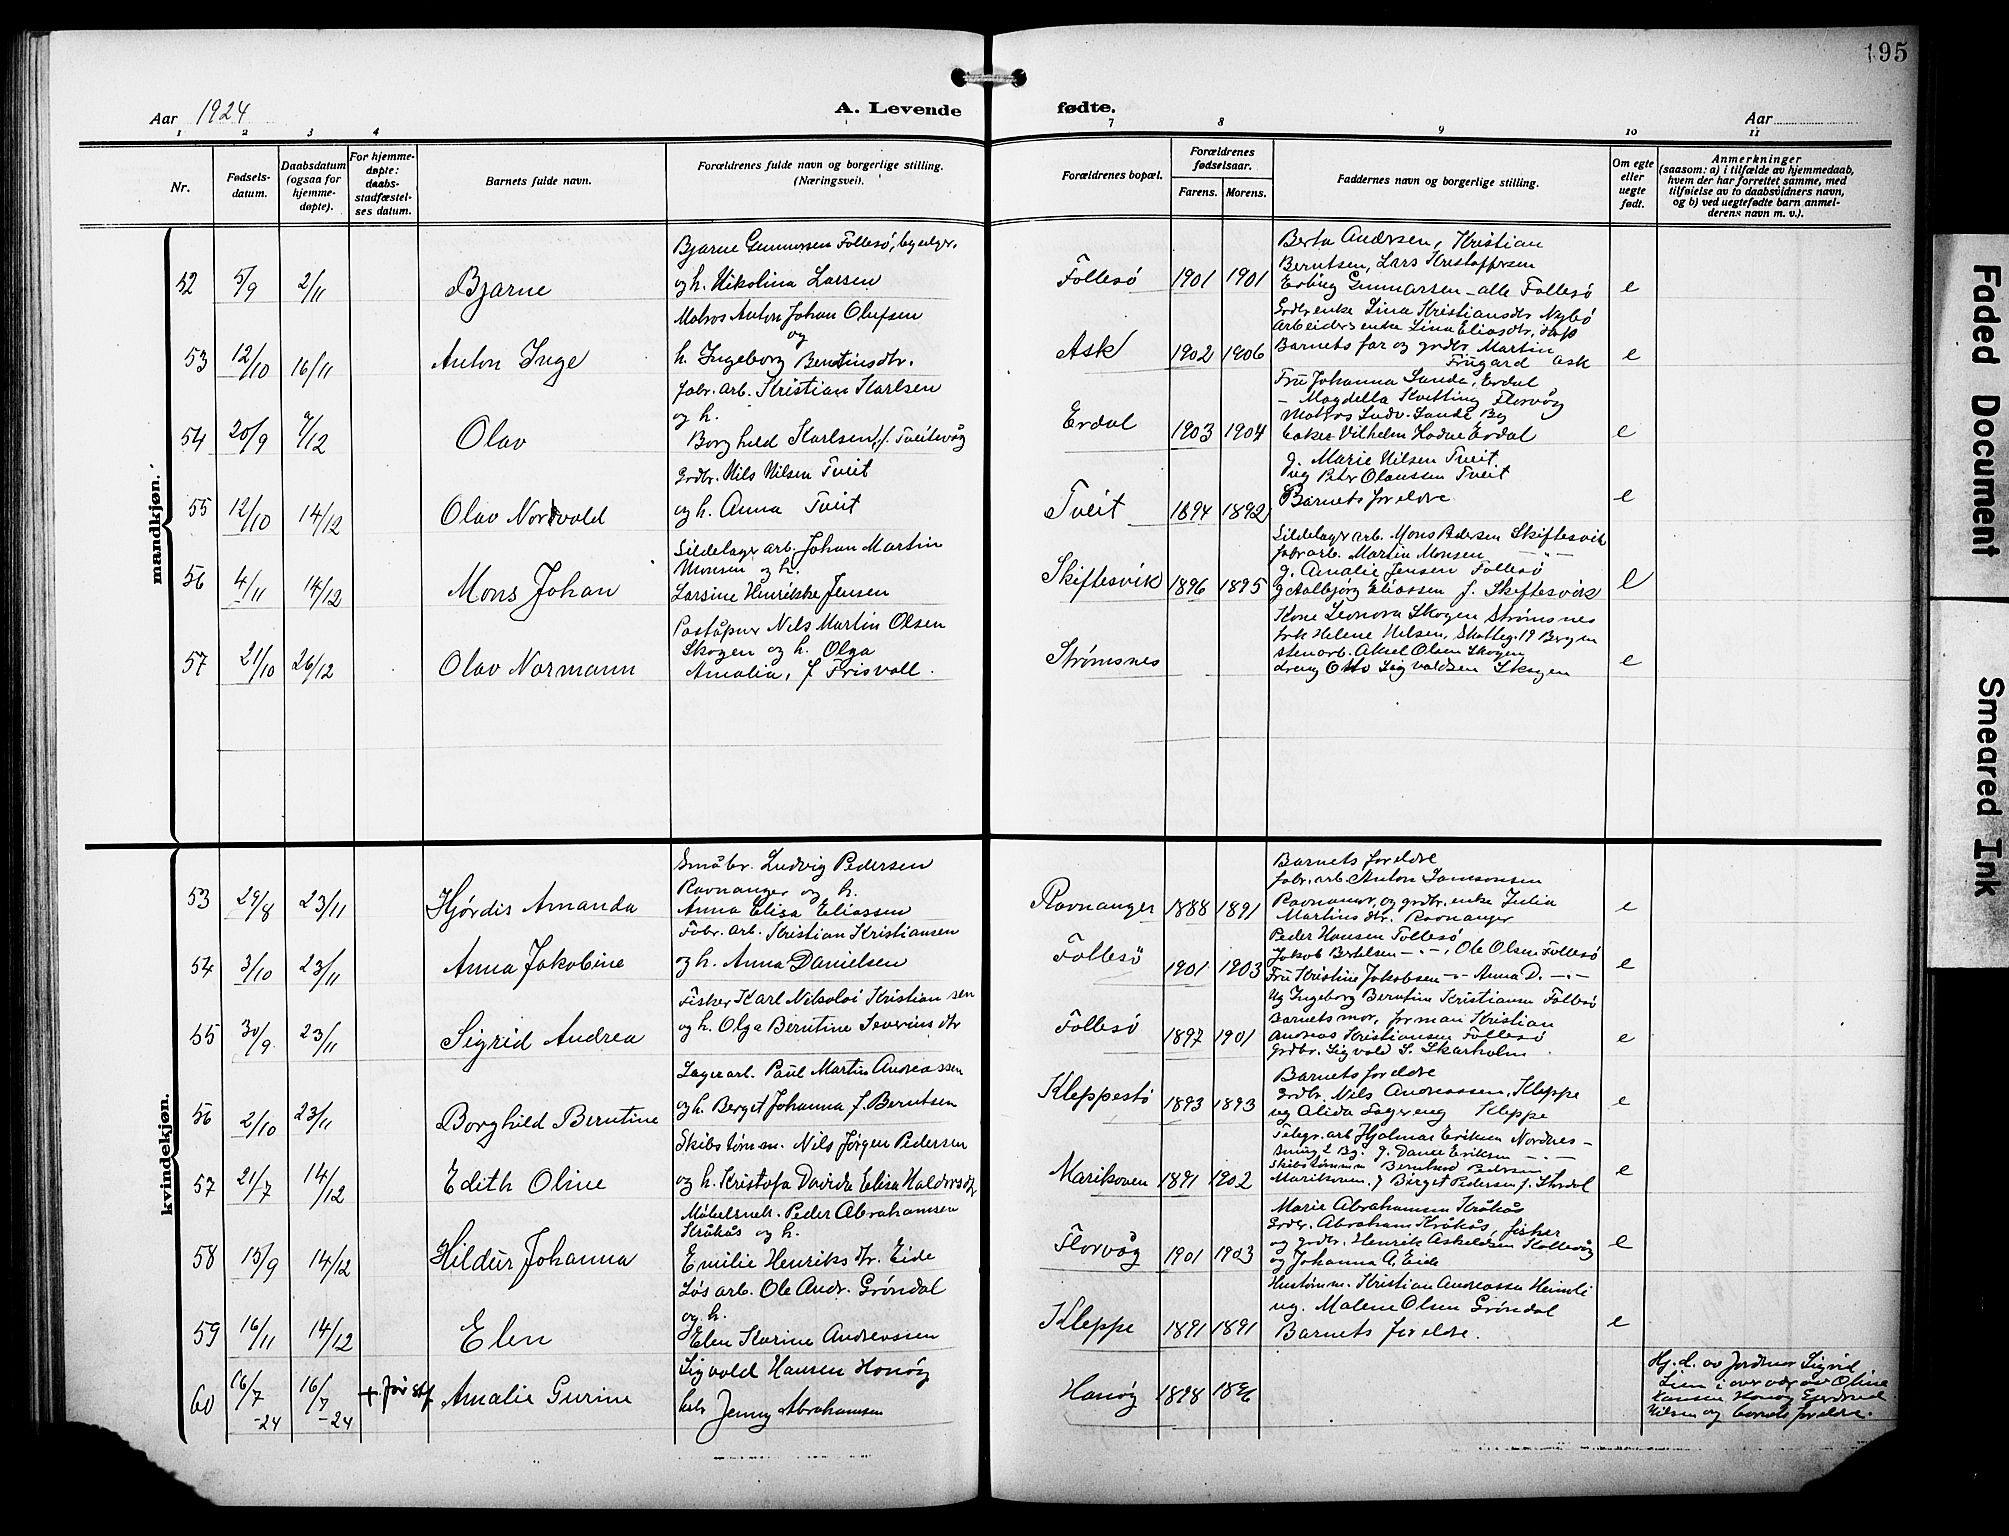 195
Aar 1924
A. Levende fødte.
Aar
1 2 3 4 7 8 9 10 11
Nr.
Fødsels-
datum.
Daabsdatum
(ogsaa for
hjemme-
døpte).
For hjemme-
døpte:
daabs-
stadfæstel-
ses datum.
Barnets fulde navn.
Forældrenes fulde navn og borgerlige stilling.
(Næringsvei).
Forældrenes bopæl.
Forældrenes
fødselsaar.
Farens. Morens.
Faddernes navn og borgerlige stilling.
Om egte
eller
uegte
født.
Anmerkninger
(saasom: a) i tilfælde av hjemmedaab,
hvem der har forrettet samme, med
tilføielse av to daabsvidners navn,
og b) ved uegtefødte barn anmel-
derens navn m. v.).
mandkjøn.
52 5/9 2/11 Bjarne
Bjarne Gunnarsen Follesö,
og h. Nikolina Larsen
Follesö 1901 1901
Berta Andersen, Kristian
Berntsen, Lars Kristoffersen
Gunnarsen - alle Follesö
e
53 12/10 16/11 Anton Inge
Matros Anton Johan Olufsen
og
h. Ingeborg Berntinsdtr.
Ask 1902 1906
Grdbr enke Lina Kristiansdtr Nybø
Arbeiders enke Lina Eliasdtr.
Barnets far og grdbr. Martin
Frugard Ask
e
54 20/9 7/12 Olav
Fabr. arb. Kristian Karlsen
og h.
Borghild Karlsen f. Tveitevåg
Erdal 1903 1904
Fru Johanna Sande, Erdal
- Magdella Kvitting Florvåg
Matros Ludv. Sande By
Vilhelm Hodne Erdal
e
55 12/10 14/12 Olav Nordvald
Grdbr. Nils Nilsen Tveit
og h. Anna Tveit
Tveit 1894 1892
g. Marie Nilsen Tveit
ug Peter Olaussen Tveit
Barnets foreldre
e
56 4/11 14/12 Mons Johan
Sildelager arb. Johan Martin
Monsen og h.
Larsine Henrikke Jensen
Skiftesvik 1896 1895
Sildelager arb. Mons Pedersen Skiftesvik
fabr arb. Martin Monsen - " -
g. Amalie Jensen Follesö
g Aalbjørg Eliassen f. Skiftesvik
e
57 21/10 26/12 Olav Normann
Poståpner Nils Martin Olsen
Skogen og h. Olga
Amalia, f Frisvoll.
Strømsnes
Kone Leonora Skogen Strømsnes
frk Helene Nilsen, Skotteg. 19 Bergen
stenarb. Aksel Olsen Skogen
dreng Otto Sigvaldsen Skogen
e
kvindekjøn.
53 29/8 23/11 Hjørdis Amanda
Småbr. Ludvig Pedersen
Ravnanger og h.
Anna Elisa Eliassen
Ravnanger 1888 1891
Barnets foreldre
fabr. arb. Anton Samsonsen
Ravnanger, og grdbr. enke Julia
Martinsdtr. Ravnanger
e
54 3/10 23/11 Anna Jakobine
Fabr. arb. Kristian Kristiansen
og h. Anna Danielsen
Follesö 1901 1903
Peder Hansen Follesö
Jakob Bertelsen - " -, Ole Olsen Follesö
Fru Kristine Jakobsen - " - Anna D. - " -
e
55 30/9 23/11 Sigrid Andrea
Fisker Karl Nikolai Kristiansen
og h. Olga Berntine Severinsdtr
Follesö 1897 1901
Ug Ingeborg Berntine Kristiansen Follesö
Barnets mor, forman Kristian
Andreas Kristiansen Follesö
Grdbr. Sigvald S. Skarholm
e
56 2/10 23/11 Borghild Berntine
Lagerarb. Paul Martin Andreassen
og h. Berget Johanna f. Berntsen
Kleppestö 1893 1893
Barnets foreldre
Grdbr. Nils Andreassen, Kleppe
ug Alida Kleppe
e
57 21/7 14/12 Edith Oline
Skibstømm. Nils Jørgen Pedersen
og h. Kristofa Davida Elisa Haldorsdtr
Marikoven 1891 1902
Telegr. arb Hjalmar Eriksen Nordnes-
smug 2 By. g. Eriksen - " -
Skibstømm Bernhard Pedersen
Marikoven, g Birget Pedersen f.
e
58 15/9 14/12 Hildur Johanna
Møbelsnek. Peder Abrahamsen
Kråkås og h.
Emilie Henriksdtr. Eide
Florvåg 1901 1903
Marie Abrahamsen Kråkås
Grdbr. Abraham Kråkås, fisker
og grdbr. Henrik Askeldsen Kollevåg
og Johanna A. Eide
e
59 16/11 14/12 Elen
Løsarb. Ole Andr. Grøndal
og h.
Elen Karine Andreassen
Kleppe 1891 1891
Hustømm. Kristian Andreassen Heimli
ug. Malene Olsen Grøndal
Barnets foreldre.
e
60 16/7-24 16/7-24 + før stf. Amalie Gurine
Sigvald Hansen Hanöy
Jenny Abrahamsen
Hanöy 1898 1896
Hj. d. av Jordmor Sigrid
Lien i overvær av Oline
Hansen Hanöy
Nilsen og barnets foreldre.
Faded Document
Smeared Ink